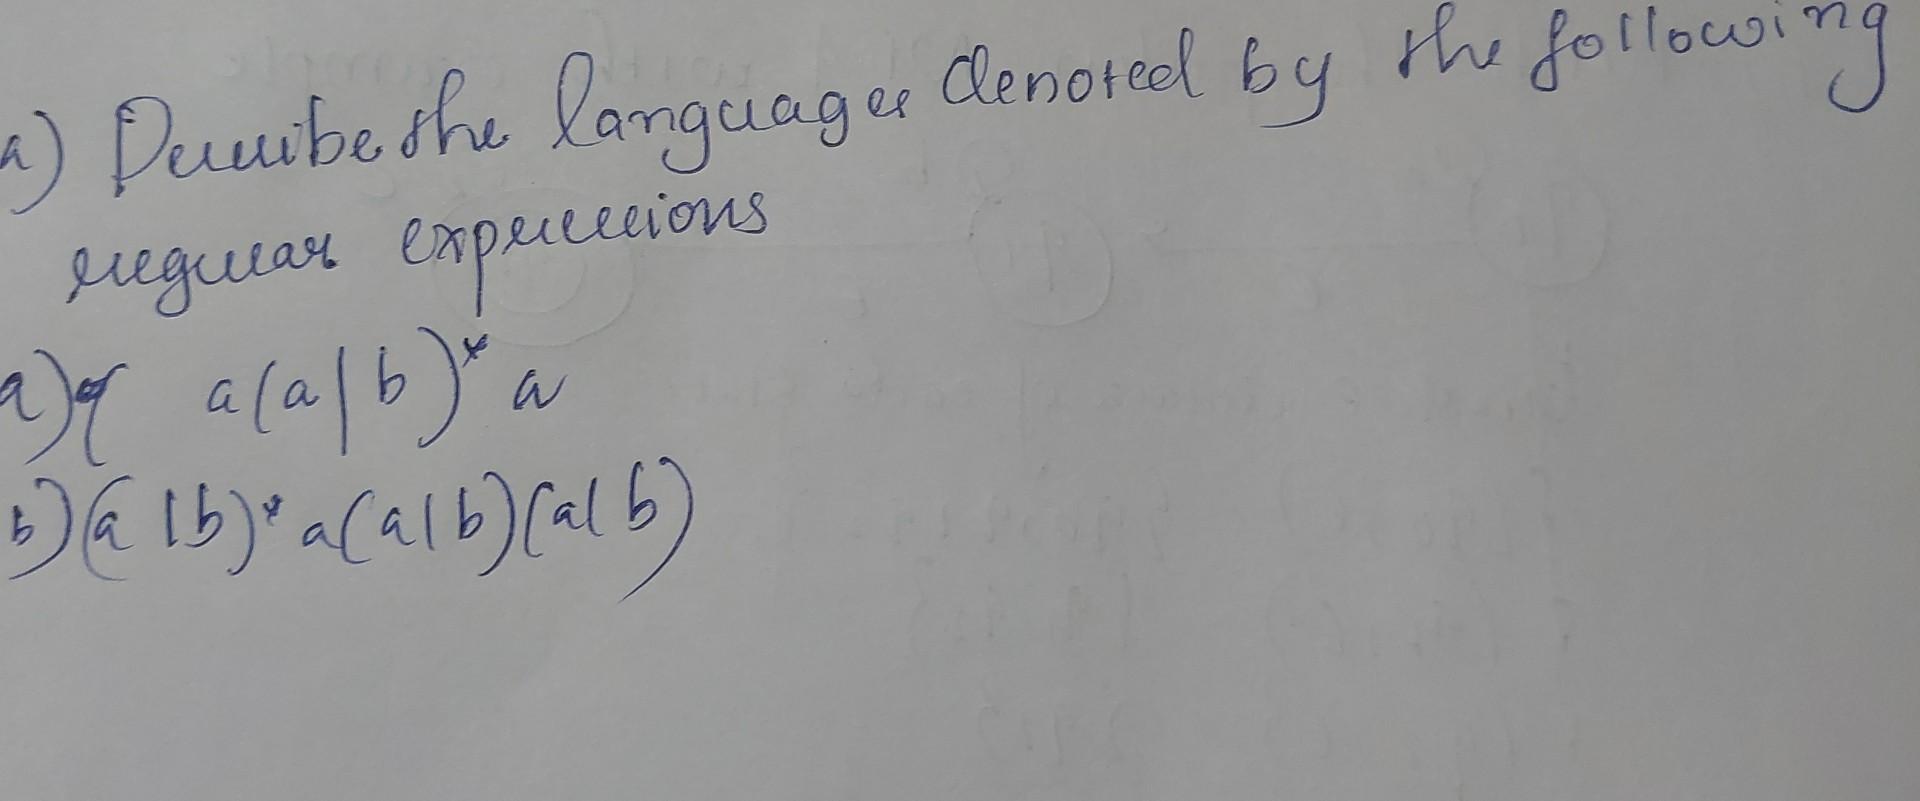 a) Describe the languages denoted by the following
regular expressions
a) a(a|b)* a
b) (a|b)* a(a|b)(a|b)